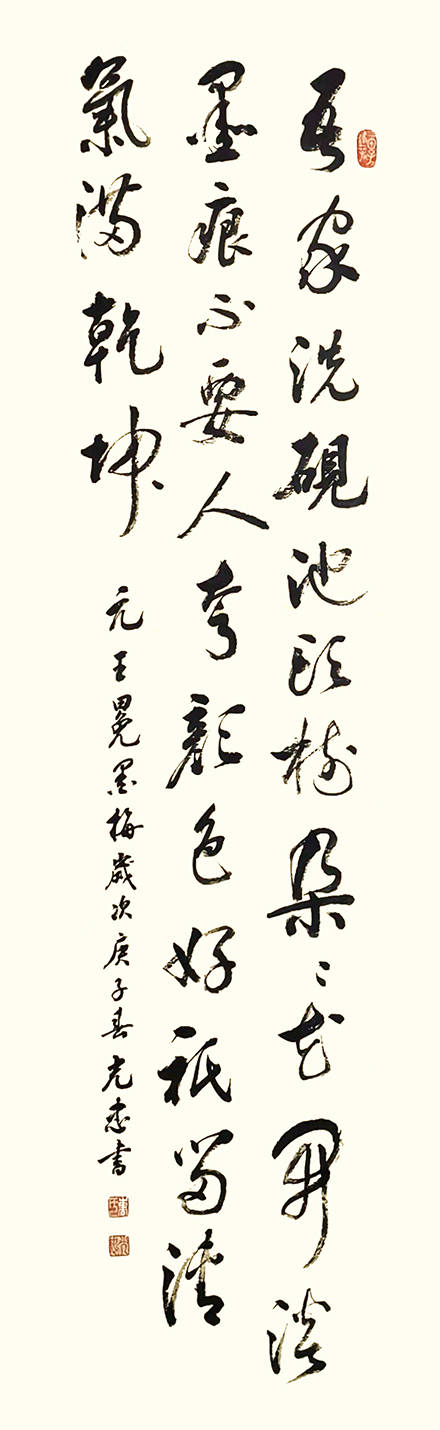 吾家洗硯池頭樹朶〻花開淡
墨痕不要人夸顏色好祇留清
氣滿乾坤
元王冕墨梅歲次庚子春克忠書